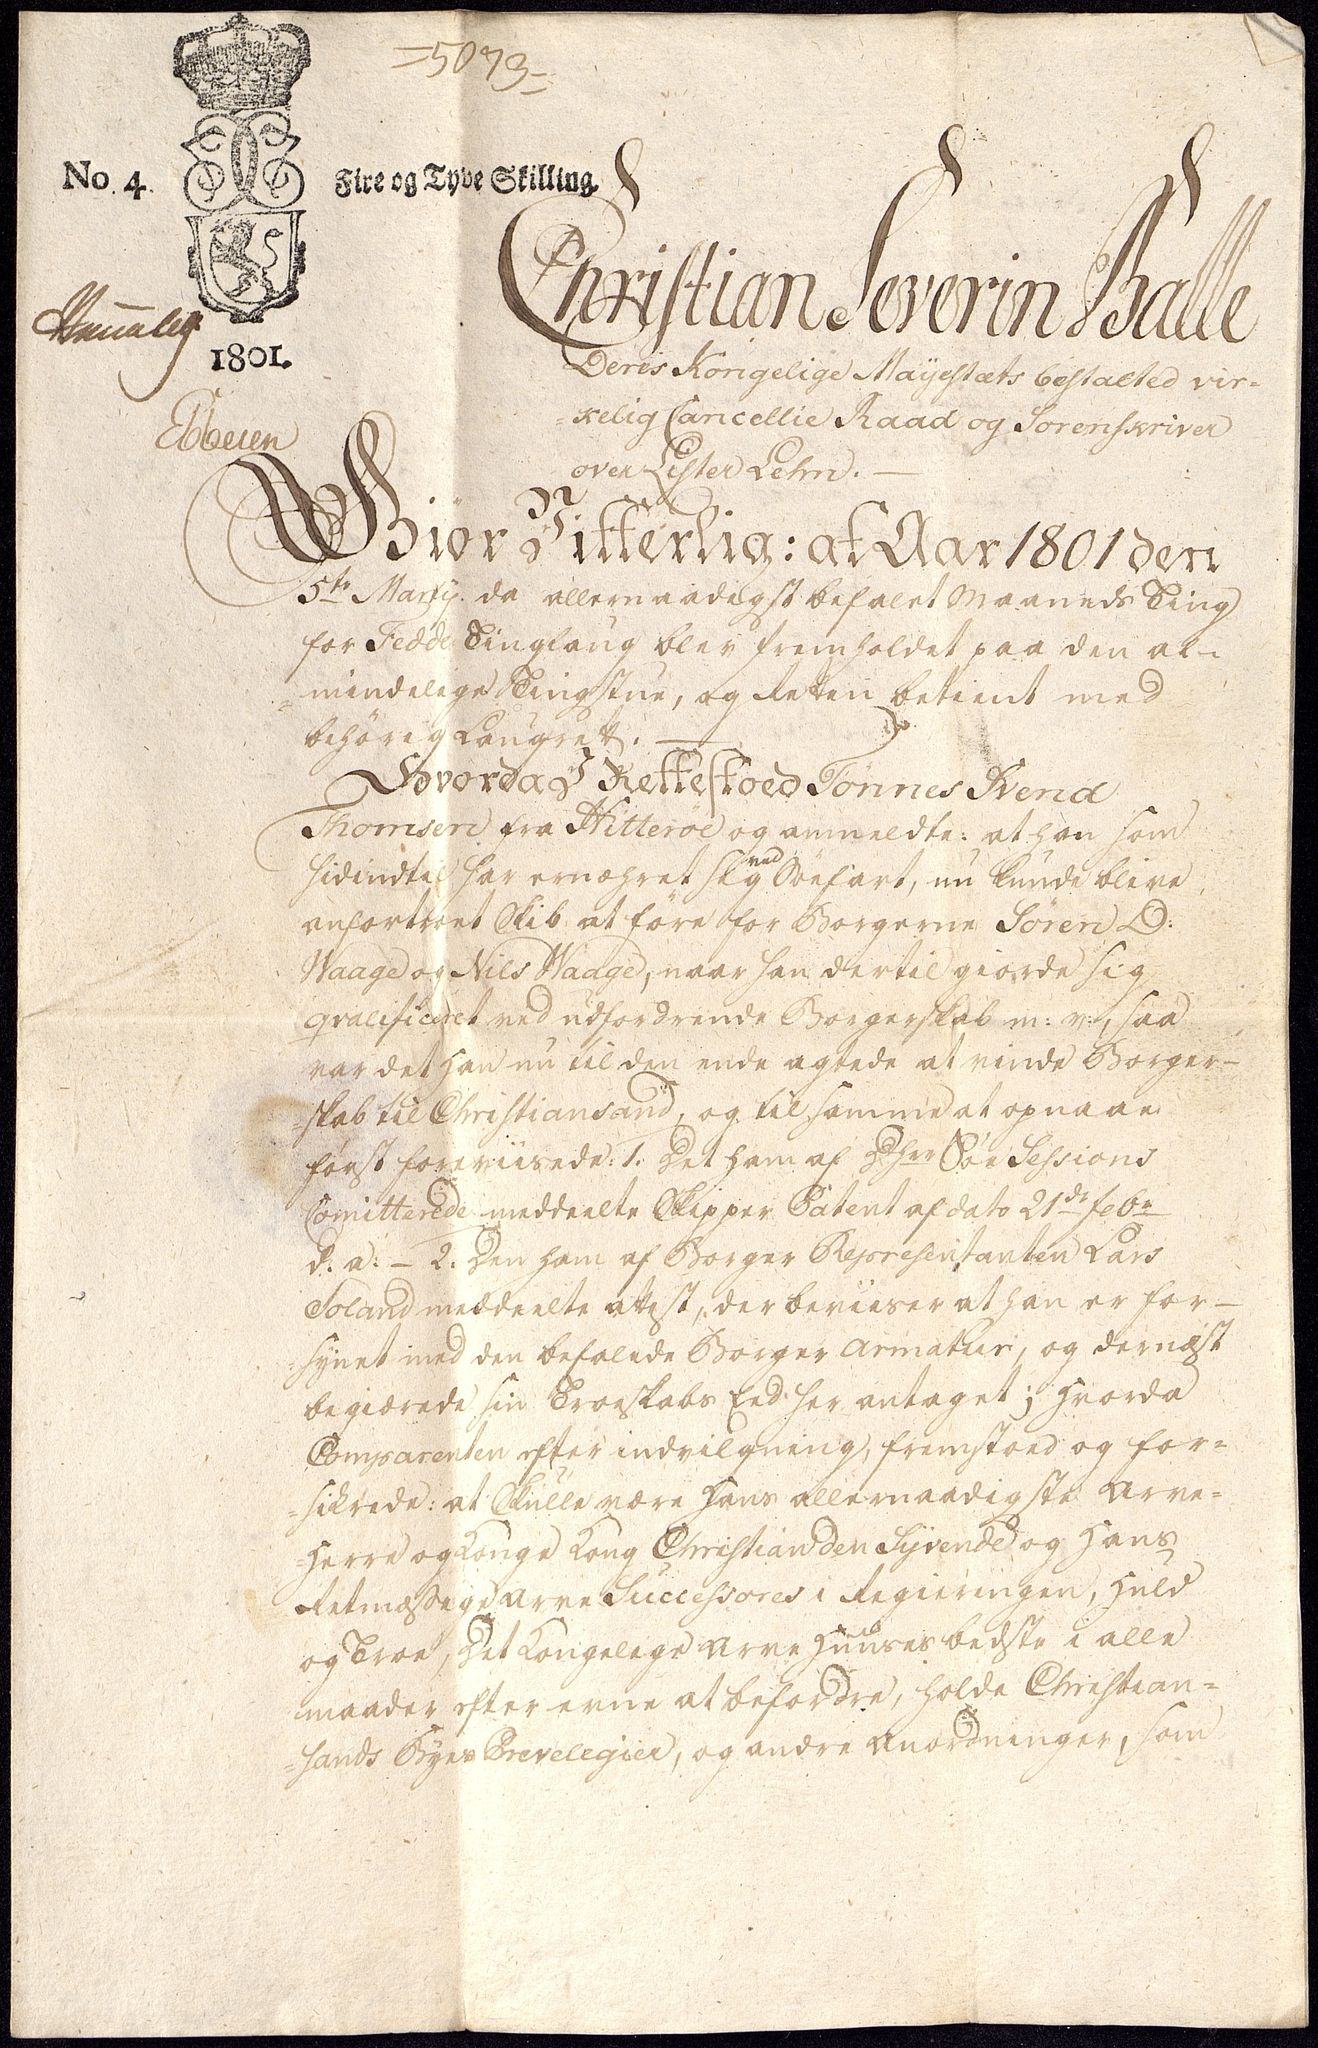 =5073=
No. 4.
Fire og Tyve Skilling.
1801.
Christian Severin Balle
Deres Kongelige Mayestæts bestalted vir-
=kelig Cancellie Raad og Sorenskriver
over Lister Lehn. —
Giör Vitterlig: at Aar 1801 den
5te Martij. da allernaadigst befalet Maaneds Ting
for Fedde Tinglaug blev fremholdet paa den al-
=mindelige Tingstue, og Retten betient med
behörig Laugret. —
Hvorda J Rettestoed Tönnes Svend
Thomsen fra Hitteröe og anmeldte: at han som
hidindtil har ernæhret sig ved Söefart, nu kunde blive
anfortroet Skib at före for Borgerne Sören O:
Waage og Nils Waage, naar han dertil giorde sig
qvalificeret ved udfordrende Borgerskab m: v:, saa
var det han nu til den ende agtede at vinde Borger-
=skab til Christiansand, og til samme at opnaae
först foreviisede: 1. Det ham af Dhrr Söe Sessions
Comitterede meddeelte Skipper Patent af dato 21de febr
d: a: — 2. Den ham af Borger Repræsentanten Lars
Soland meddeelte attest, der beviiser at han er for-
=synet med den befalede Borger Armatur, og dernæst
begiærede sin Troeskabs Eed her antaget; hvorda
Comparenten efter indvilgning, fremstoed og for-
=sikrede: at skulle være Hans allernaadigste Arve-
=Herre og Konge Kong Christian den Syvende og Hans
Retmæssege Arve Successores i Regieringen, huld
og Troe, Det Kongelege Arve Huuses bedste i alle
maader efter evne at befordre, holde Christian-
=sands Byes Prevelegier, og andre Anordninger, som